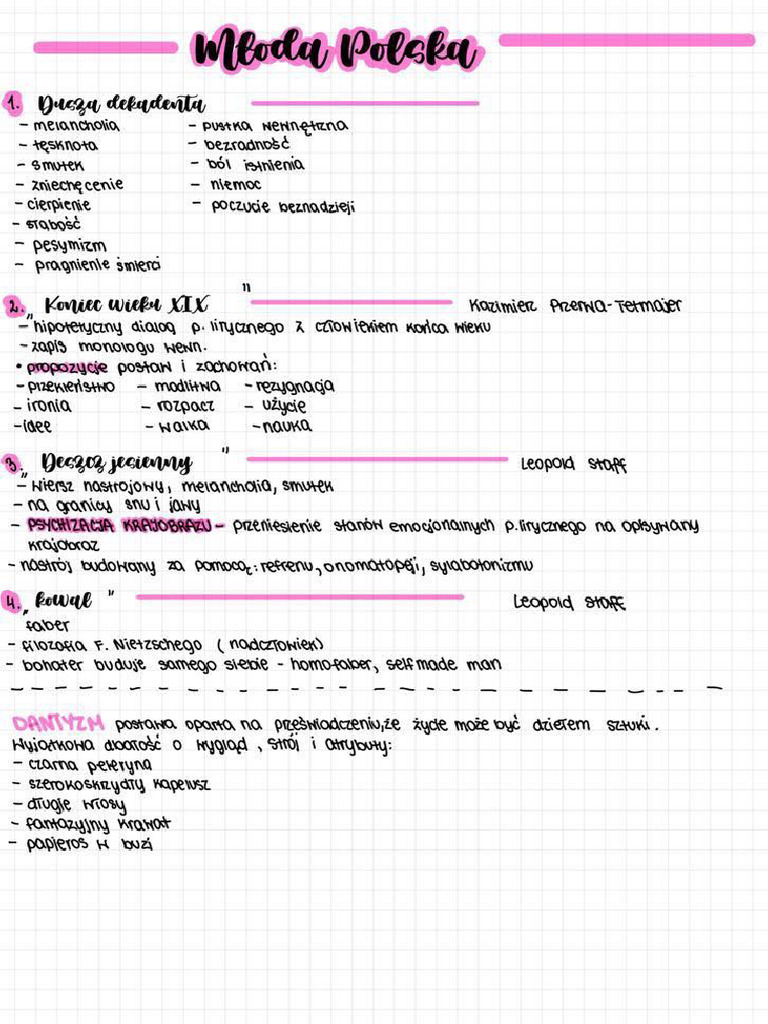 Młoda Polska
1. Dusza dekadenta
- melancholia - pustka wewnętrzna
- tęsknota - bezradność
- smutek - ból istnienia
- zniechęcenie - niemoc
- cierpienie - poczucie beznadzieji
- słabość
- pesymizm
- pragnienie śmierci
2. „Koniec wieku XIX" Kazimierz Przerwa-Tetmajer
- hipotetyczny dialog p. lirycznego z człowiekiem końca wieku
- zapis monologu wewn.
• propozycje postaw i zachowań:
- przekleństwo - modlitwa - rezygnacja
- ironia - rozpacz - użycie
- idee - walka - nauka
3. „Deszcz jesienny" Leopold Staff
- wiersz nastrojowy, melancholia, smutek
- na granicy snu i jawy
- PSYCHIZACJA KRAJOBRAZU - przeniesienie stanów emocjonalnych p. lirycznego na opisywany
krajobraz
- nastrój budowany za pomocą: refrenu, onomatopeji, sylabotonizmu
4. „kowal" Leopold Staff
faber
- filozofia F. Nietzschego (nadczłowiek)
- bohater buduje samego siebie - homo-faber, self made man
DANTYZM postawa oparta na przeświadczeniu, że życie może być dziełem sztuki.
Wyjątkowa dbałość o wygląd, strój i atrybuty:
- czarna peleryna
- szerokoskrzydły kapelusz
- długie włosy
- fantazyjny krawat
- papieros w buzi